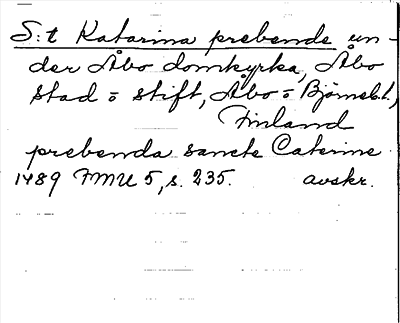 S:t Katarina prebende un-
der Åbo domkyrka, Åbo
stad o stift, Åbo o Björneb.l.,
Finland
prebenda sancte Caterine
1489 FMU 5, s. 235. avskr.